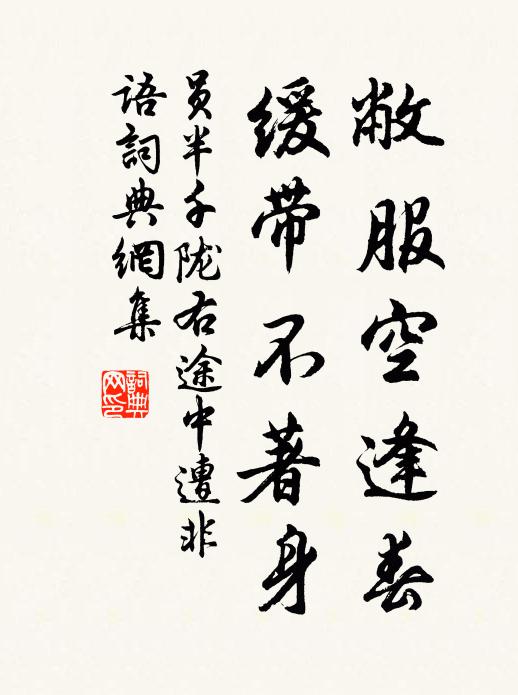 敝服空逢春
缓带不著身
员半千陇右途中遭非
语词典網集
詞典
网印